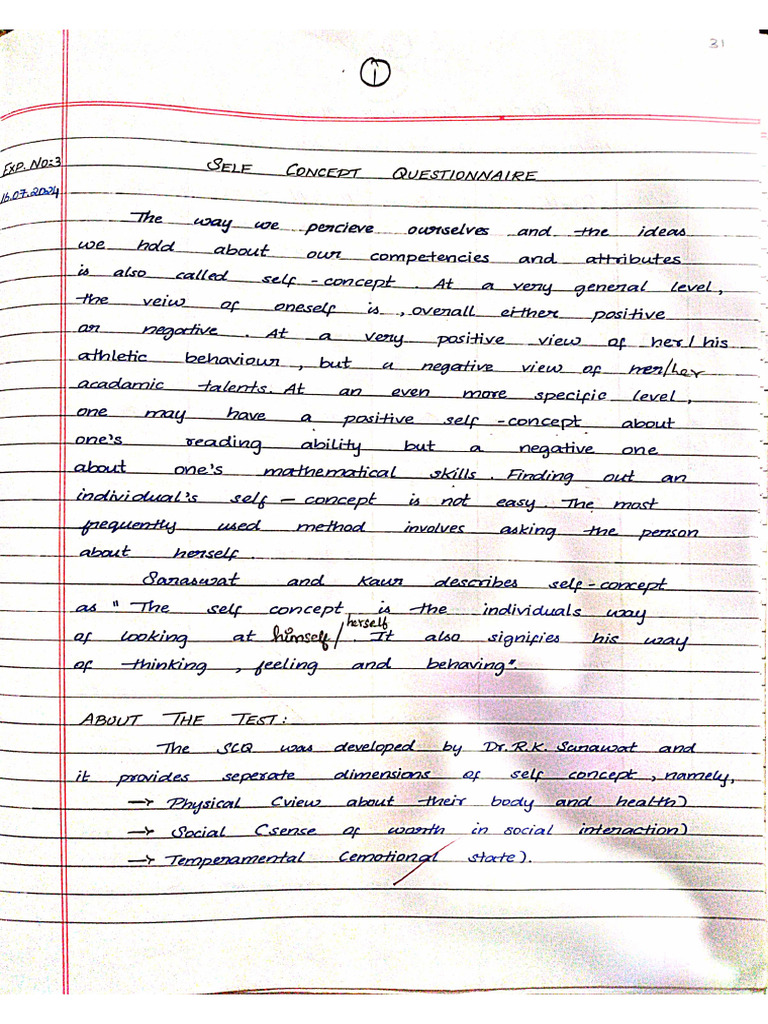 31
1
Exp. No:3
SELF CONCEPT QUESTIONNAIRE
16.07.2024
The way we percieve ourselves and the ideas
we hold about our competencies and attributes
is also called self-concept. At a very general level,
the veiw of oneself is, overall either positive
or negative. At a very positive view of her/his
athletic behaviour, but a negative view of her/her
acadamic talents. At an even more specific level,
one may have a positive self-concept about
one's reading ability but a negative one
about one's mathematical skills. Finding out an
individual's self-concept is not easy. The most
frequently used method involves asking the person
about herself.
Saraswat and Kaur describes self-concept
as "The self concept is the individuals way
of looking at himself/herself. It also signifies his way
of thinking, feeling and behaving".
ABOUT THE TEST:
The SCQ was developed by Dr. R.K. Sarawat and
it provides seperate dimensions of self concept, namely,
→ Physical (view about their body and health)
→ Social (sense of worth in social interaction)
→ Temperamental (emotional state).